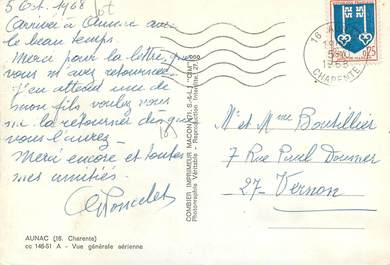 5 Oct. 1968
Arrivée à Aunac avec
le beau temps.
Merci pour la lettre que
vous m'avez retournée.
J'en attend une de
mon fils voulez vous
me la retourner dès que
vous l'aurez.
Merci encore et toutes
mes amitiés.
COMBIER IMPRIMEUR MACON (71-S.-&-L.) "CIM"
Photographie Véritable - Reproduction interdite
16
19
5-10
1968
CHARENTE
0,25
Mr et Mme Boutillier
7 Rue Paul Doumer
27- Vernon
AUNAC (16. Charente)
cc 146-51 A - Vue générale aérienne